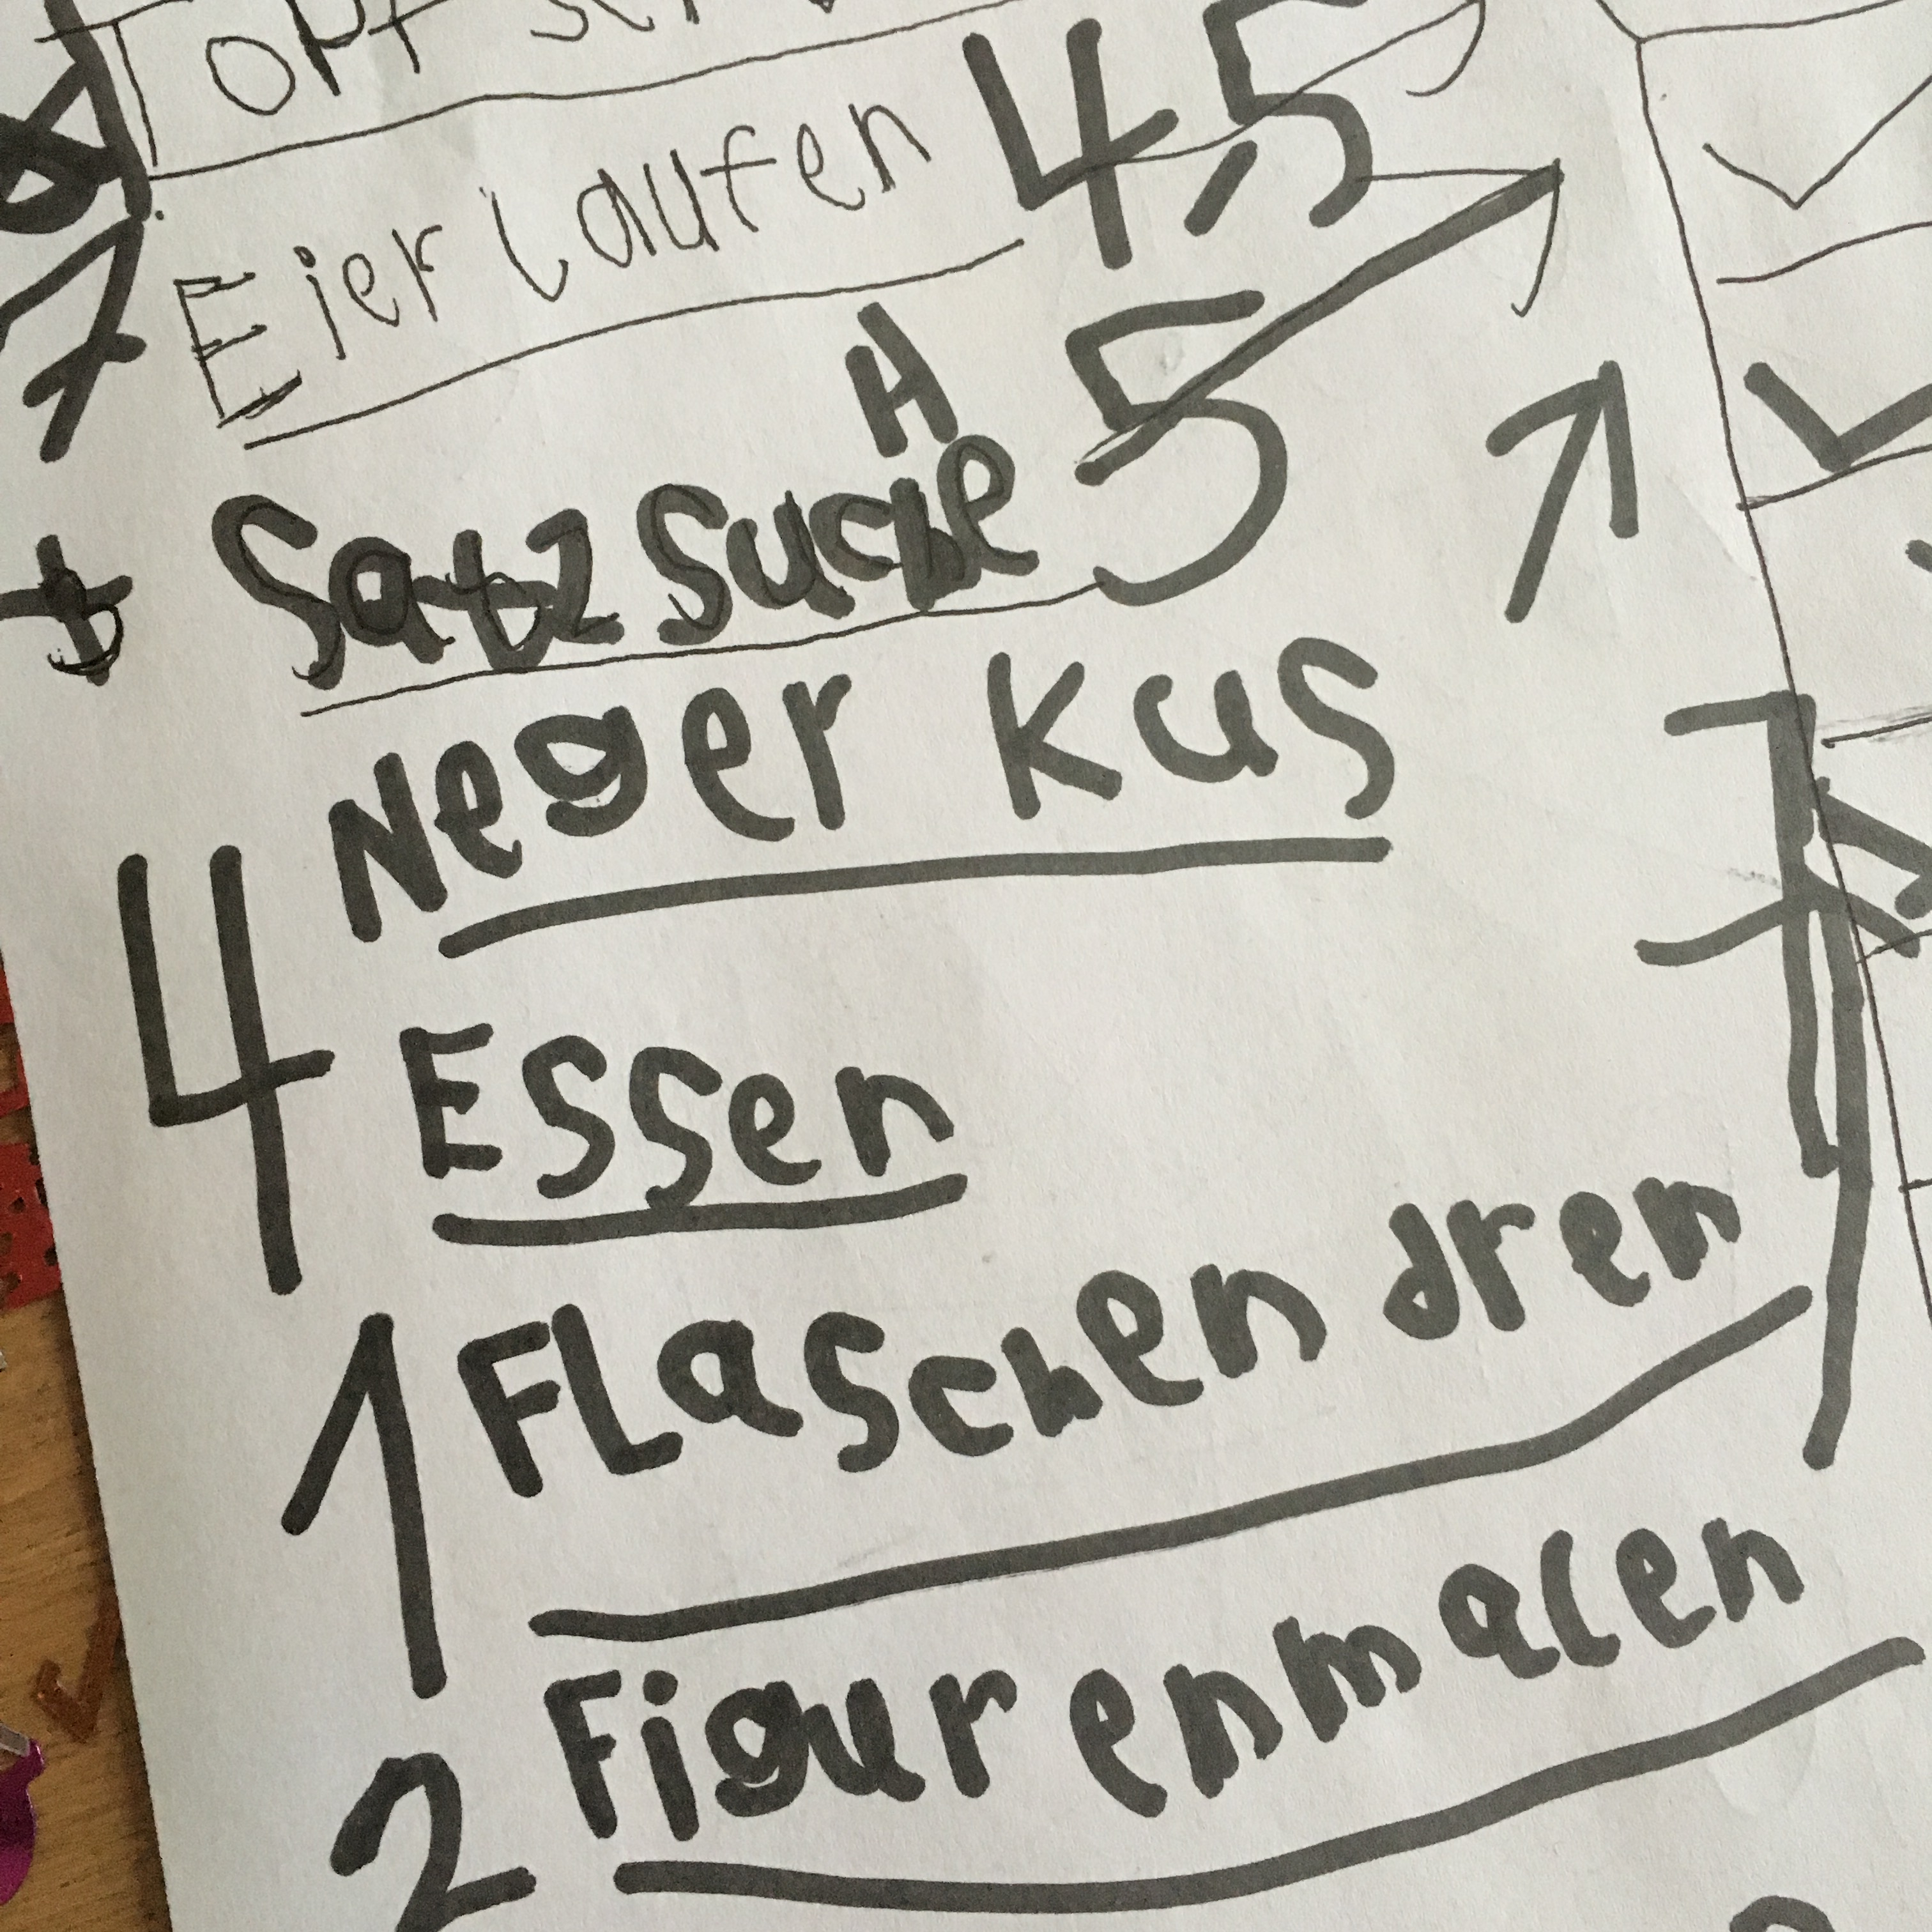 Topf
7 Eier Laufen 4,5
H
Satz Suche 5
Neger Kus
4 Essen
1 FLaschen dren
2 Figurenmalen